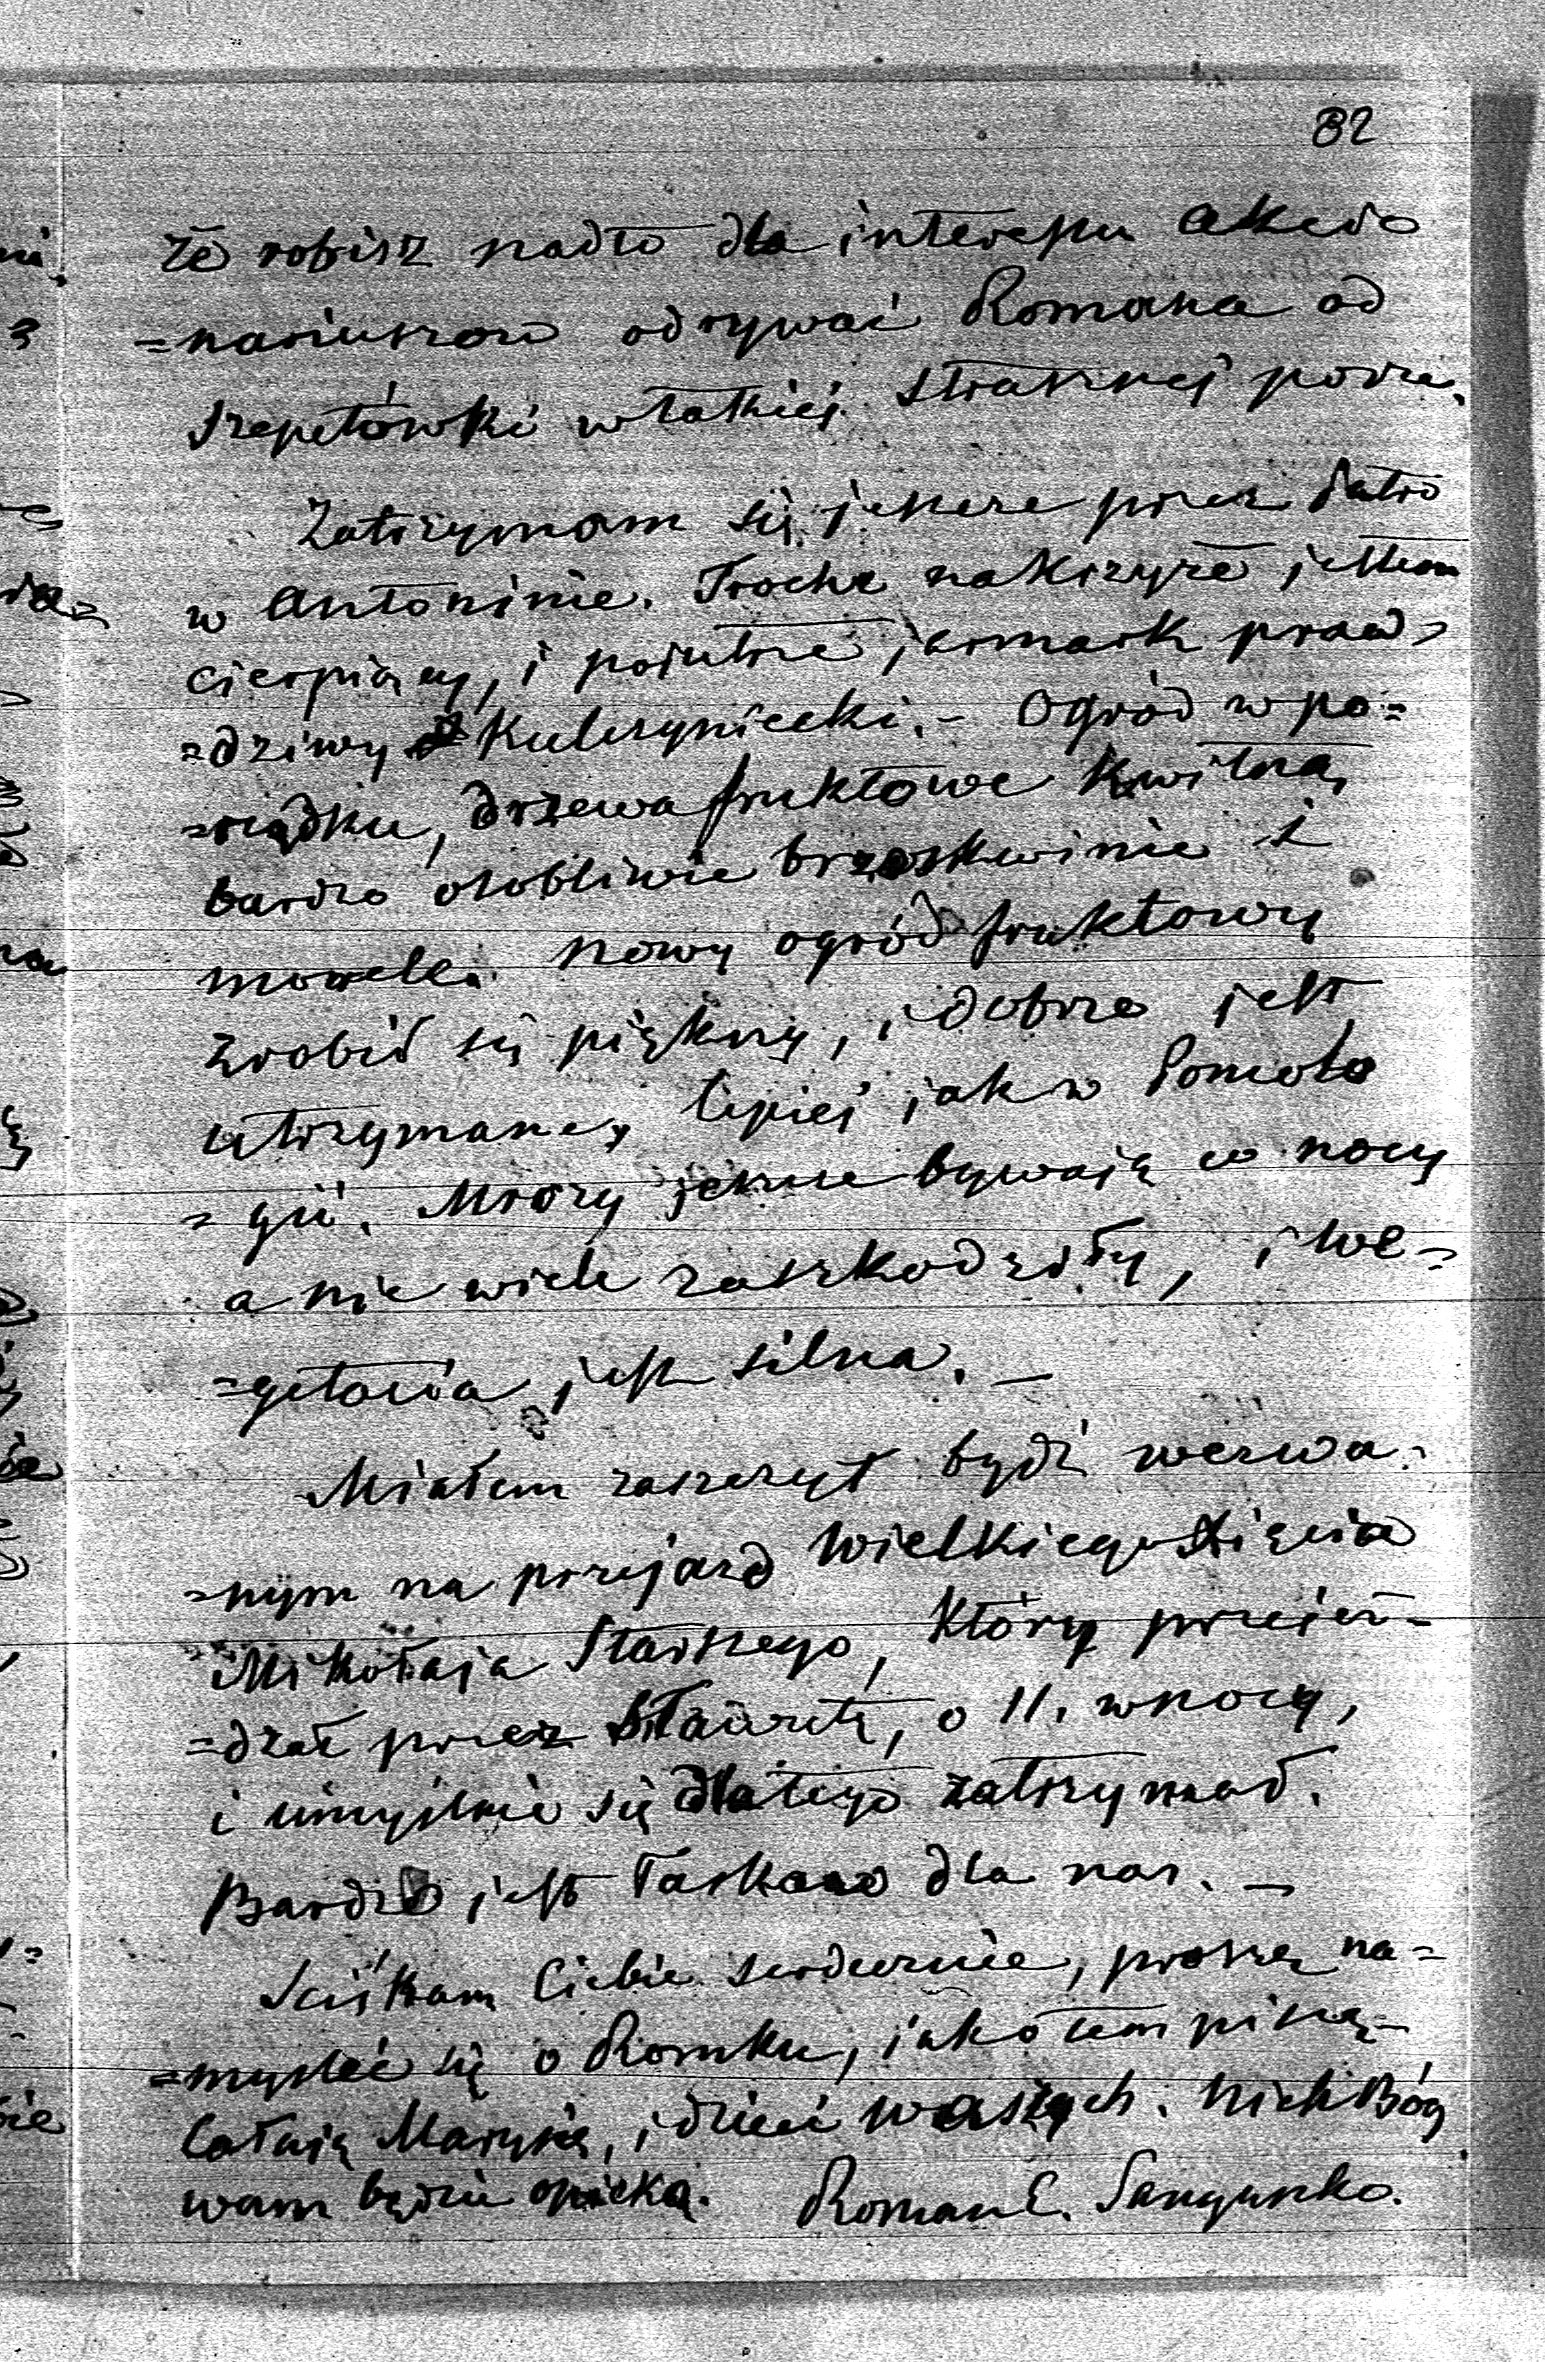 82
że robisz nadto dla interessu akcio
=nariuszow odrywać Romana od
Szepetówki w takiej strasznej porze.
Zatrzymam się jeszcze przez jutro
w Antoninie. Troche na krzyże jestem
cierpiący, i pojutrze jarmark praw=
=dziwy Kulczyniecki. – Ogród w po=
=rządku, drzewa fruktowe kwitną
bardzo osobliwie brzoskwinie i
morele. Nowy ogród fruktowy
zrobił się piękny, i dobrze jest
utrzymaney lepiej jak w Pomolo
=gii. Mrozy jeszcze bywają w nocy
a nie wiele zaszkodziły, i we=
=getacia jest silna. –
Miałem zaszczyt bydź wezwa=
=nym na przejazd Wielkiego Xięcia
Mikołaja Starszego, który przejeż=
=dzał przez Sławutę, o 11. w nocy,
i umyślnie się dla tego zatrzymał.
Bardzo jest łaskaw dla nas. –
Sciskam Ciebie serdecznie, proszę na=
=mysleć się o Romku, jako tem piszę
Całuję Marynię, i dzieci waszych. Niech Bóg
wam będzie opieką. Roman E. Sanguszko.